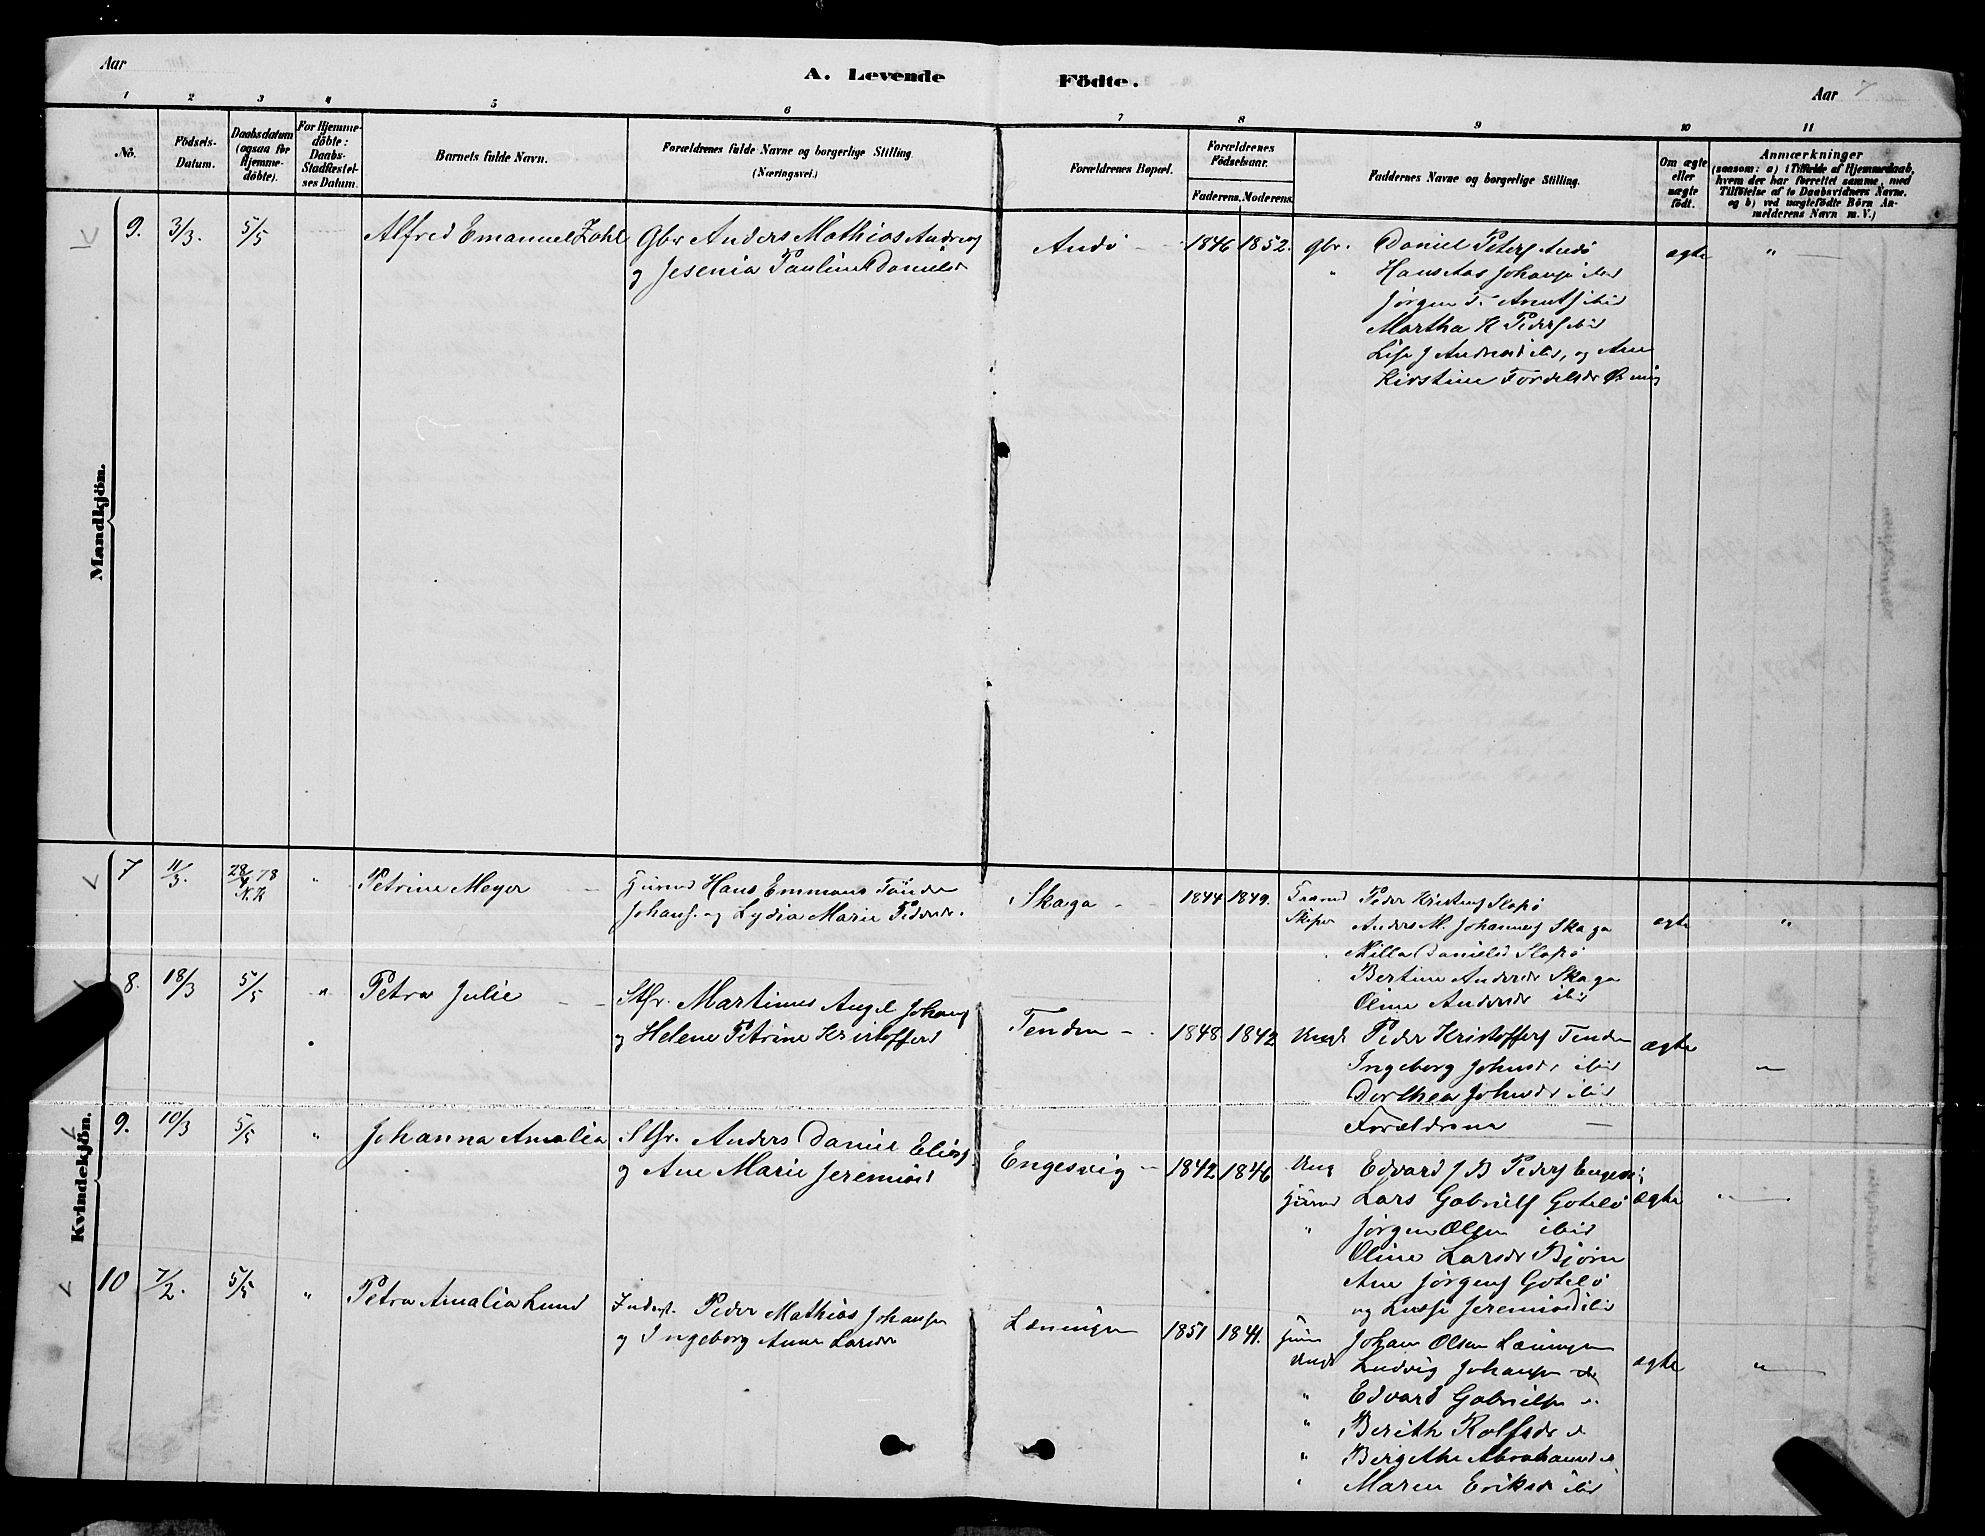 Aar
A. Levende Födte.
Aar 7
1 2 3 4 5 6 7 8 9 10 11
No.
Födsels-Datum.
Daabsdatum (ogsaa for Hjemmedöbte).
For Hjemmedöbte: Daabs-Stadfæstelses Datum.
Barnets fulde Navn.
Forældrenes fulde Navne og borgerlige Stilling (Næringsvei.)
Forældrenes Bopæl.
Forældrenes Födselsaar.
Faderens. Moderens.
Faddernes Navne og borgerlige Stilling.
Om ægte eller uægte födt.
Anmærkninger
(saasom: a) i Tilfælde af Hjemmedaab,
hvem der har forrettet samme, med
Tilföielse af to Daabsvidners Navne.
og b) ved uægtefödte Börn An-
melderens Navn m. V.)
Mandkjön.
9. 3/3. 5/5 Alfred Emanuel Zahl Gbr Anders Mathias Andreas
og Jesenia Pauline Danielsd
Andö 1846 1852. gbr. Daniel Peters Andö ægte "
" Hans Aas Johans ibid
Jørgen T. Arents ibid
Martha K Peders ibid
Lise J Andreasd ibid, og Ane
Kirstine Tordelsdr
Kvindekjön.
7 11/3. 28/4 78 N.K. " Petrine Meyer Hans Emmanus Tönder
Johans. og Lydia Marie Pedersdr.
Skaga 1844 1849. Peder Kristens Slapö ægte "
Skiper Anders M. Johannes Skaga
Milla Danielsd Slapö
Bertine Andersdr Skaga
Oline Andersdr ibid
8. 18/3 5/5 " Petra Julie Stfr. Martinus Angel Johans
og Helene Petrine Kristoffersd
Tenden 1848 1842 Ungk Peder Kristoffers Tenden ægte "
Ingeborg Johnsdr ibid
Dorthea Johnsdr ibid
Forældrene
9. 10/3 5/5 " Johanna Amalia Stfr. Anders Daniel Elias
og Ane Marie Jeremiasd
Engesvig 1842 1846 Ung Edvard J B Peders Engesvi
Lars Gabriels Gotelö ægte "
" Jørgen Olsen ibid
Oline Larsdr Bjørn
Ane Jørgens Gotelö
og Lussi Jeremiasd ibid
10 7/2. 5/5 " Petra Amalia Lund Inderst. Peder Mathias Johansen
og Ingeborg Anna Larsdr
Læningen 1851 1841. Johan Olsen Læningen
Ungk Ludvig Johansen do ægte "
" Edvard Gabrielsen "
" Berith Rolfsdr "
" Bergithe Abrahamsd "
" Maren Eriksdr ibid